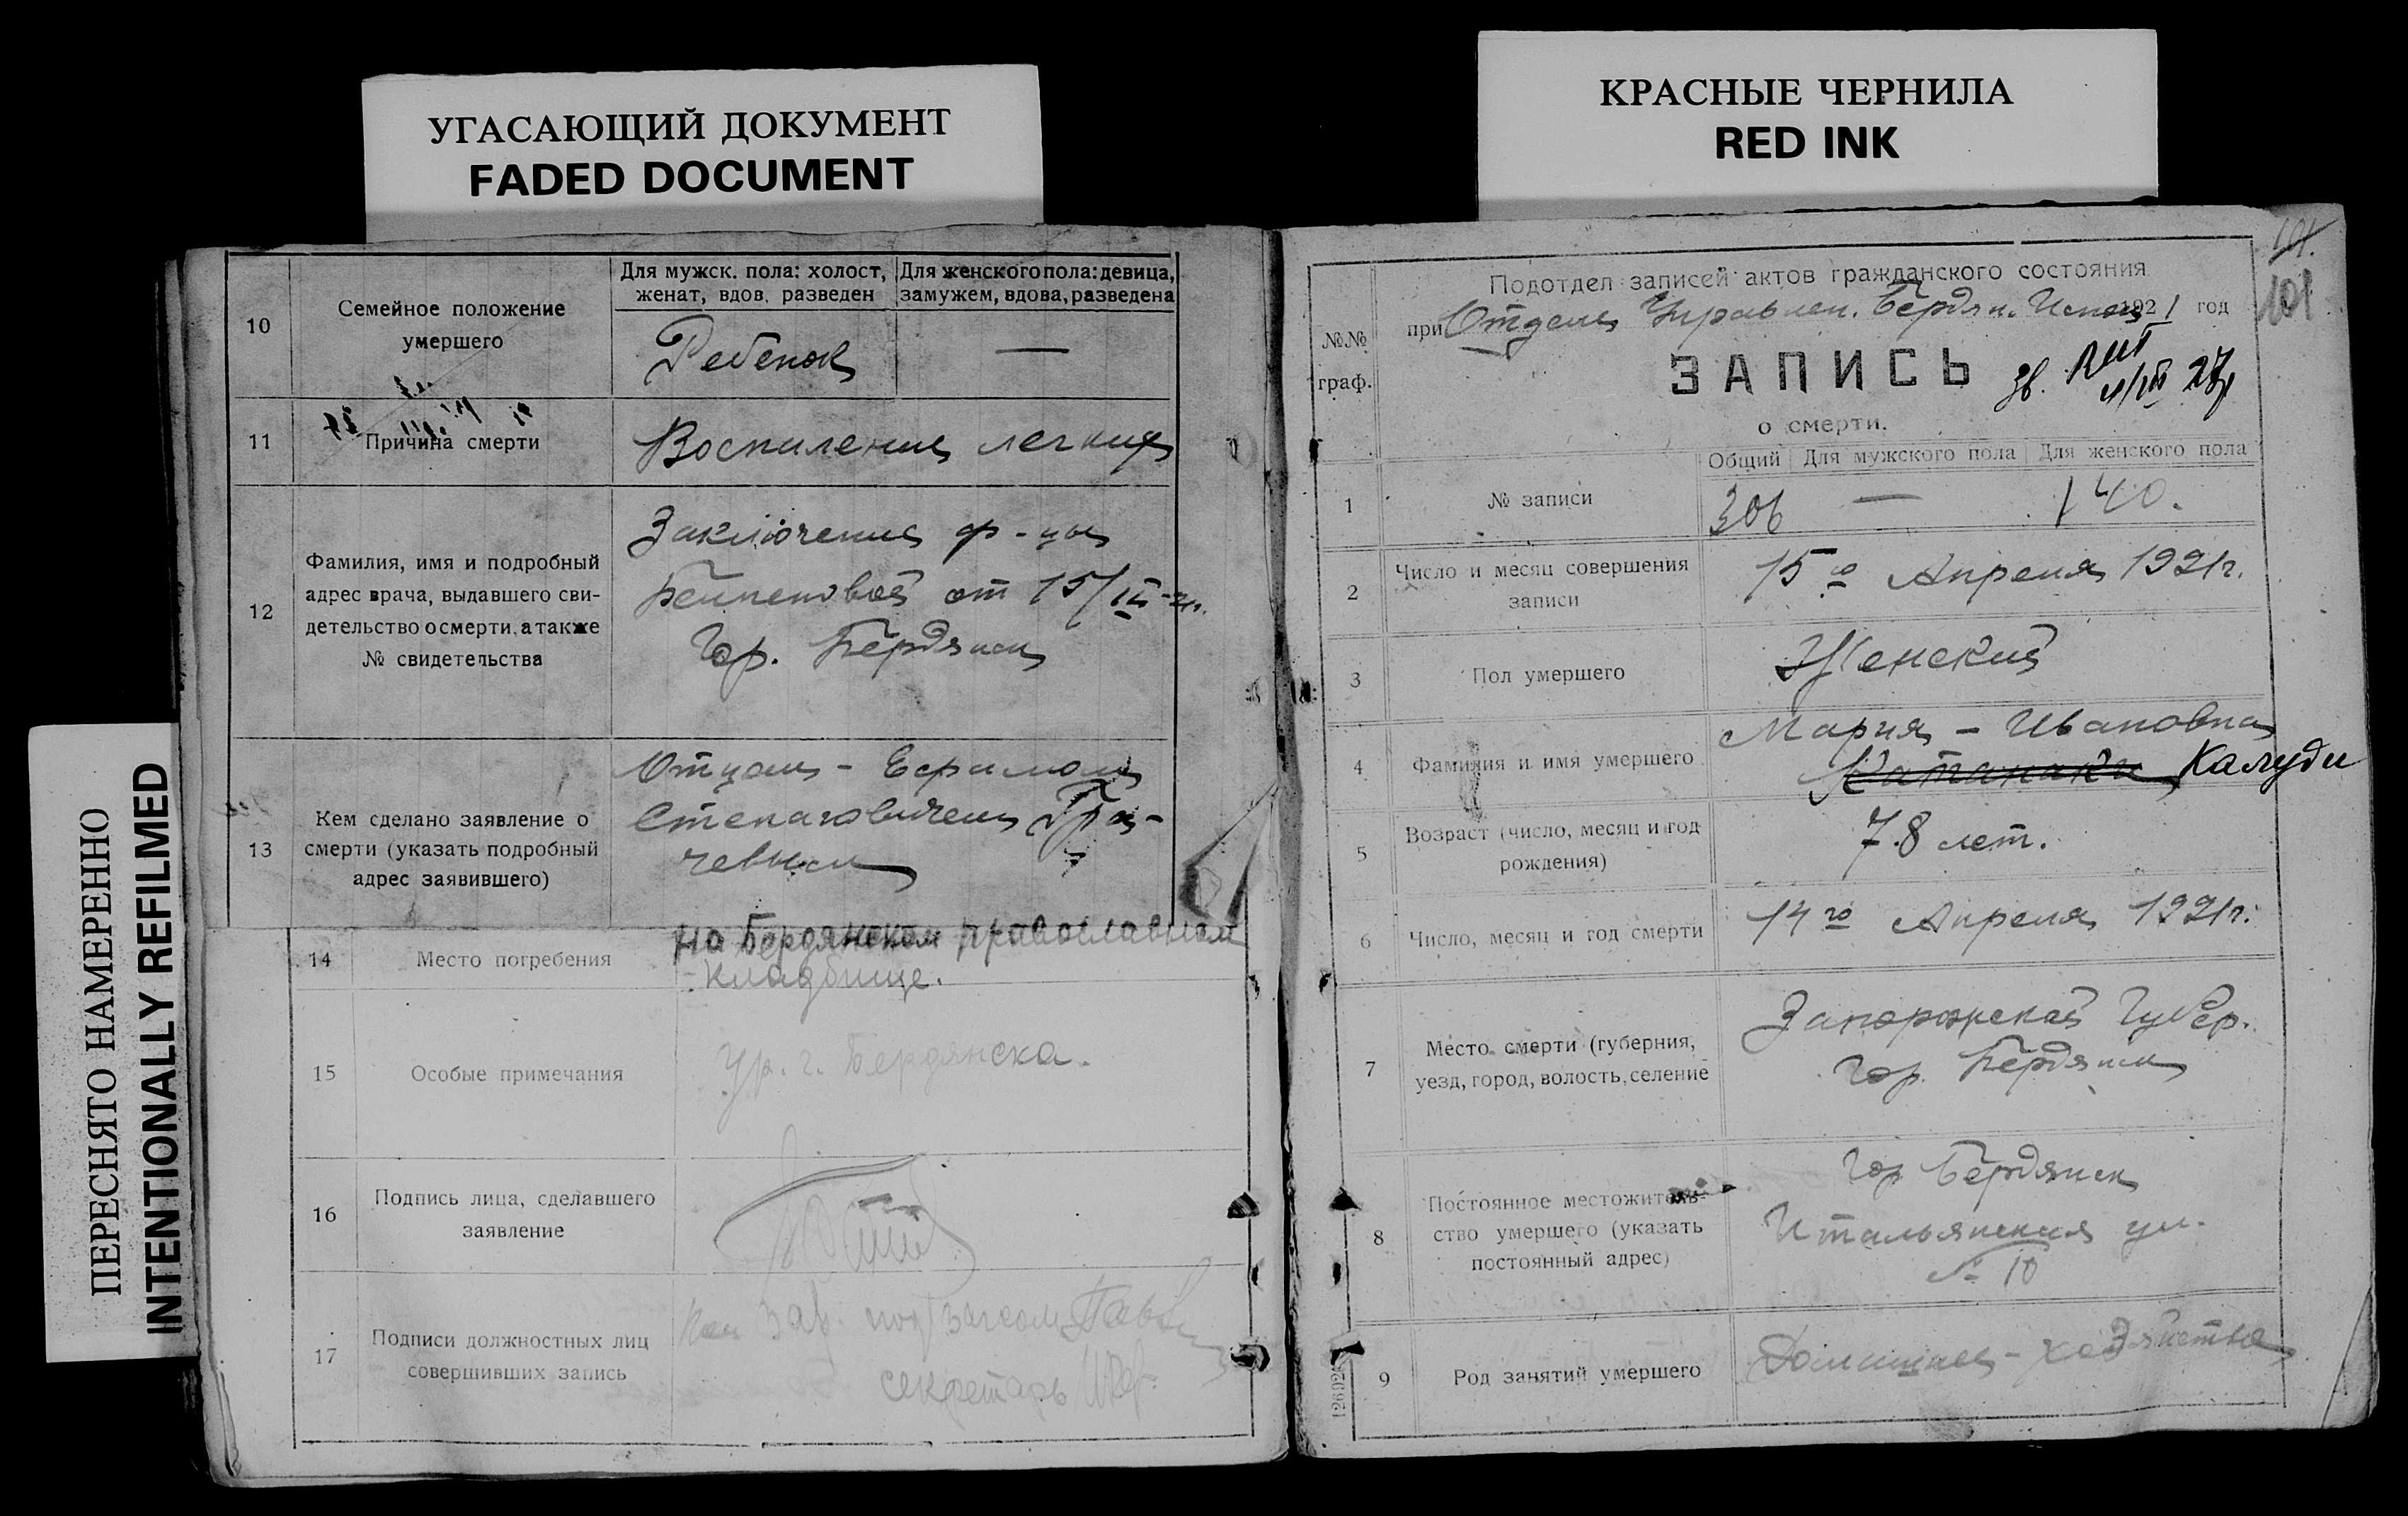 УГАСАЮЩИЙ ДОКУМЕНТ
FADED DOCUMENT
КРАСНЫЕ ЧЕРНИЛА
RED INK
ПЕРЕСНЯТО НАМЕРЕННО
INTENTIONALLY REFILMED
10
Семейное положение
умершего
Для мужск. пола: холост,
женат, вдов, разведен
Для женского пола: девица,
замужем, вдова, разведена
Ребенок
—
11
Причина смерти
Воспаление легких
12
Фамилия, имя и подробный
адрес врача, выдавшего сви-
детельство о смерти, а также
№ свидетельства
Заключение ф-цы
от 15/IV-21г.
Гор. Бердянск
13
Кем сделано заявление о
смерти (указать подробный
адрес заявившего)
Отцом - Ефимом
Степановичем Гра-
чевым
14
Место погребения
на Бердянском православном
кладбище.
15
Особые примечания
Ур. г. Бердянска.
16
Подпись лица, сделавшего
заявление
17
Подписи должностных лиц
совершивших запись
Зав. подзагсом
секретарь
101
№№
граф.
Подотдел записей актов гражданского состояния
при Отделе Управлен. Бердян. 1921 год
ЗАПИСЬ
о смерти.
Общий
Для мужского пола
Для женского пола
1
№ записи
306 — 140.
2
Число и месяц совершения
записи
15го Апреля 1921г.
3
Пол умершего
Женский
4
Фамилия и имя умершего
Мария - Ивановна
Калуди
5
Возраст (число, месяц и год
рождения)
78 лет.
6
Число, месяц и год смерти
14го Апреля 1921г.
7
Место смерти (губерния,
уезд, город, волость, селение
Запорожской Губер.
Гор. Бердянск
8
Постоянное местожитель-
ство умершего (указать
постоянный адрес)
Гор Бердянск
Итальянская ул.
№ 10
9
Род занятий умершего
Домашнее-хозяйство
12692